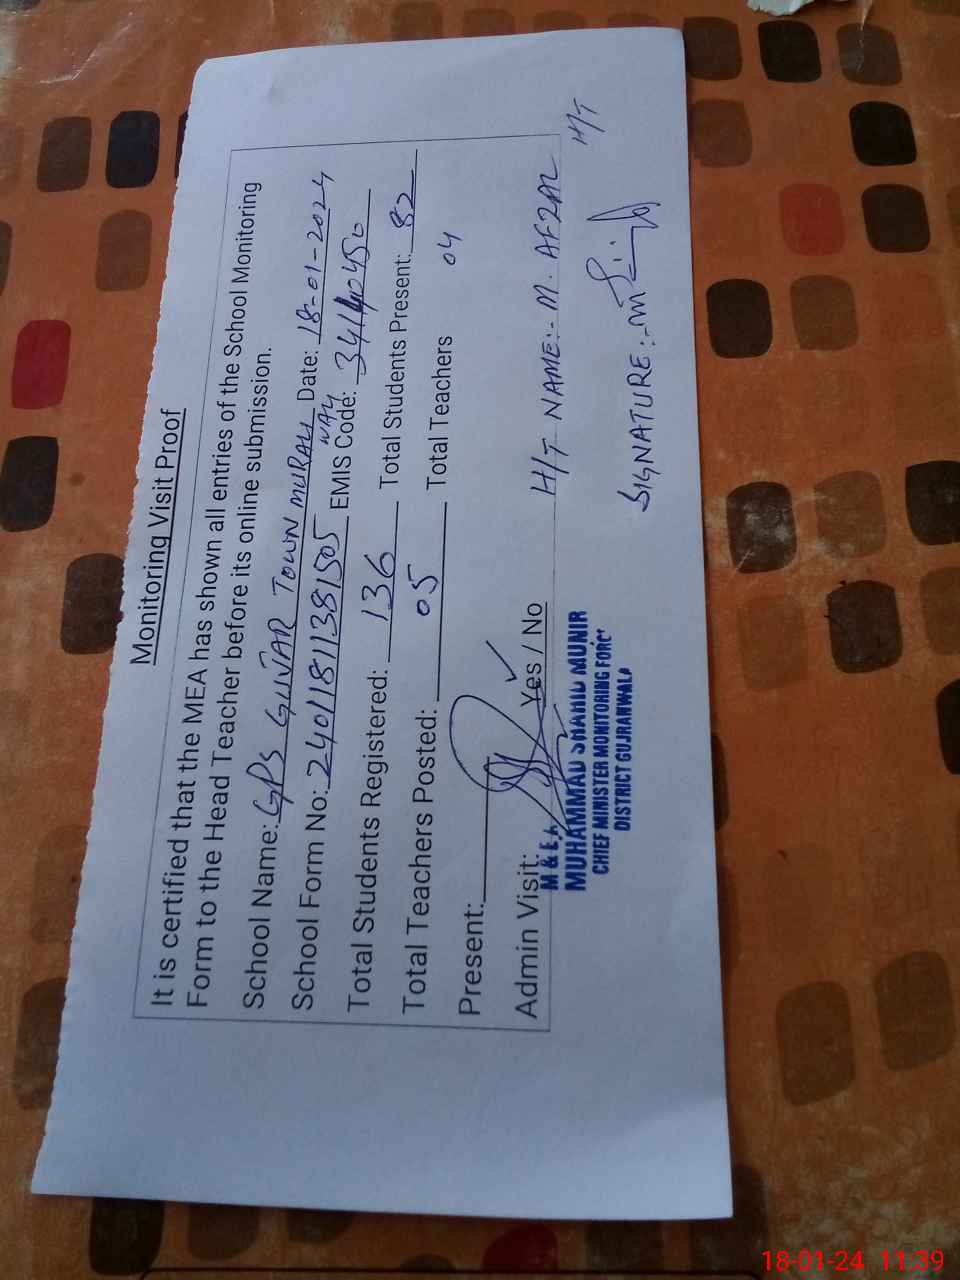 Monitoring Visit Proof
It is certified that the MEA has shown all entries of the School Monitoring
Form to the Head Teacher before its online submission.
School Name: GPS GUJJAR TOWN MURALI WALI Date: 18-01-2024
School Form No: 24011811381505 EMIS Code: 34140450
Total Students Registered: 136 Total Students Present: 82
Total Teachers Posted: 05 Total Teachers 04
Present:
Admin Visit: Yes / No
H/T NAME:- M. AFZAL H/T
SIGNATURE:-
M & E A
MUHAMMAD SHAHID MUNIR
CHIEF MINISTER MONITORING FORC
DISTRICT GUJRANWALA
18-01-24 11:39